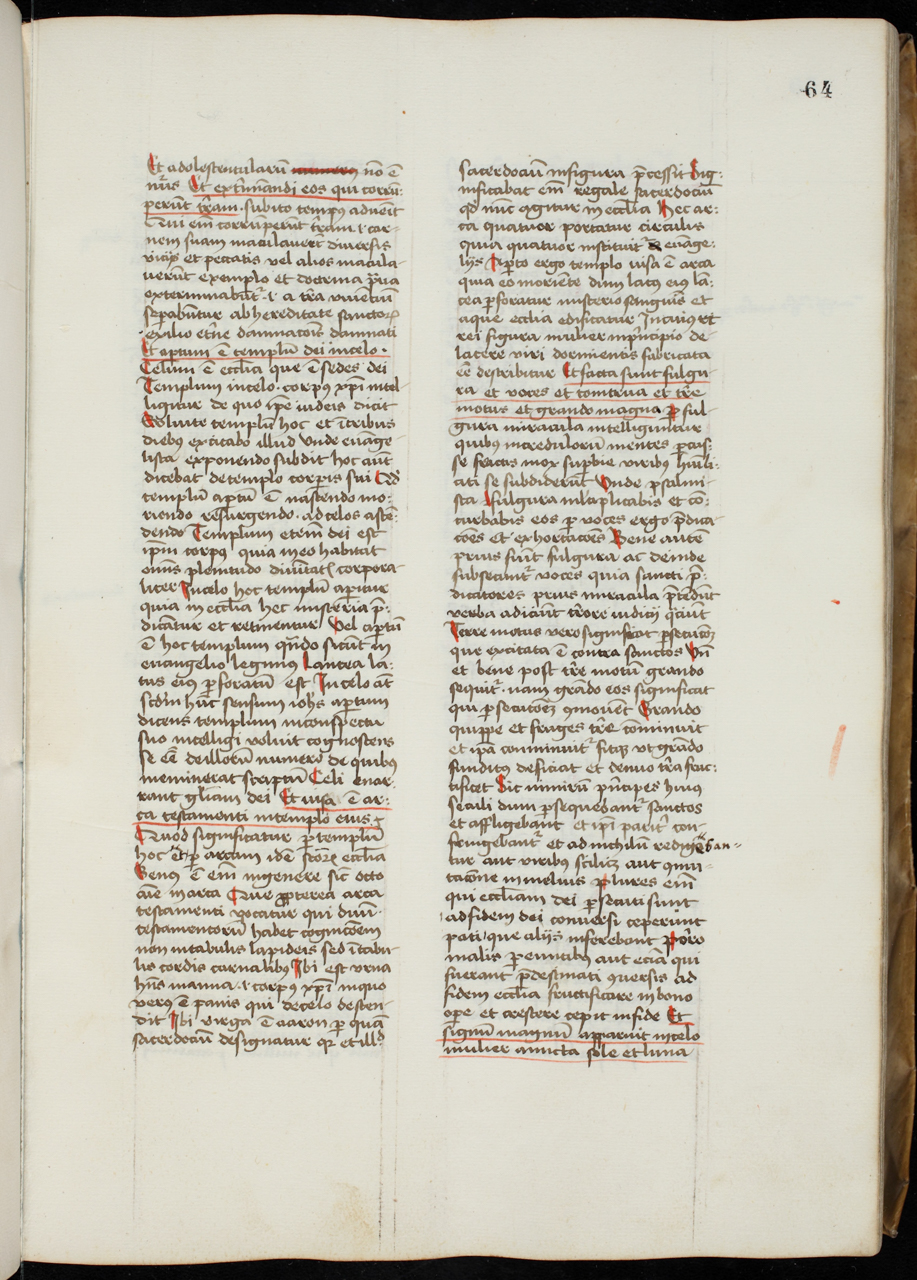 64
Et adolescentularū numerꝯ nō ē
nūs Et ext̕minandi eos qui corrū:
perūt t̕ram. subito tempꝯ adveīt
Qui em̄ corrūperūt t̕ram .i. car-
nem suam maculaverūt diversis
vicijs et peccatis vel alios macula-
verūt exemplo et doctrina p̄va
exterminabūt̕ .i. a t̕ra viuēciū
sep̱abūtur ab hereditate sanctorū
exilio et̕ne damnacōis damnati
Et aptum ē templū dei in celo.
Celum ē ecclīa que ē sedes dei
Templum in celo. corpꝯ xp̄i intel-
ligitur de quo ip̄e iudeis dicit
Soluite templū hoc et ī tribus
diebꝯ excitabo illud Unde euāge-
lista exponendo subdit hoc aūt
dicebat de templo corp̱is sui Qđ
templū aptū ē nascendo mo-
riendo resurgendo. ad celos ascē-
dendo Templum eteīm dei est
ip̄m corpꝯ quia in eo habitat
om̄is plenitudo diuītatꝭ corpora-
liter In celo hoc templū apitur
quia in ecclīa hec misteria p̄-
dicātur et retinentur Vel aptū
ē hoc templum qn̄do sicūt in
euangelio legimus Lancea la-
tus eiꝯ p̱foratū est In celo aūt
scd̄m hūc sensum ioh̄s apertum
dicens templum in conspectu
suo intelligi voluit cognoscens
se eē de illorū numero de quibꝯ
meminerat scriptū Celi enar-
rant gl̄iam dei Et visa ē ar-
ca testamenti in templo eius
Quod significatur p̱ templū
hoc et p̱ arcam idē scōrꝫ ecclīa
Genꝯ ē em̄ in genere sic octo
aīe in arca Que propterea arca
testamenti vocatur qui diuī-
testamentorū habet cognicōem
non in tabulis lapideis sed ī tabu-
lis cordis carnalibꝯ Ibi est vrna
hn̄s manna .i. corpꝯ xp̄i in quo
verꝯ ē panis qui de celo descen-
dit Ibi virga ē aaron p̱ quā
sacerdociū designatur qꝛ et illđ
sacerdociū in figura p̄cessit Sig-
nificabat em̄ regale sacerdociū
qđ nūc agitur in ecclīa Hec ar-
ca quatuor portatur circulis
quia quatuor instituit̕ euāge-
lijs Ap̱to ergo templo visa ē arca
quia eo moriente dum latꝯ eiꝯ lā-
cea p̱foratur misterio sanguīs et
aque ecclīa edificatur In cuiꝯ
rei figura mulier in p̄ncipio de
latere viri dormientis fabricata
eē describitur Et facta sunt fulgu-
ra et voces et tonitrua et t̕re
motus et grando magna P̱ ful-
gura miracula intelliguntur
quibꝯ incredulorū mentes p̱cus-
se fractis mox sup̱bie viribꝯ hūili-
ati se subdiderūt Unde psalmi-
sta Fulgura multiplicabis et cō-
turbabis eos p̱ voces ergo p̄dica-
cōes et exhortacōes Bene autē
prius sūt fulgura ac deinde
subsecūt̕ voces quia sancti p̄-
dicatores prius miracula p̄tēdūt
verba adiciūt t̕rore iudicij q̄ciūt
Terre motus vero significat p̱secucōꝫ
que excitata ē contra sanctos Un̄
et bene post t̕re motum grando
sequit̕. nam grādo eos significat
qui p̱secucōeꝫ ꝯmouēt Grando
quippe et fruges t̕re cōminuit
et ip̄a conminuit̕ sitqꝫ vt grādo
funditꝯ deficiat et denuo t̕ra fruc-
tificet Sic nimirū pn̄cipes huiꝯ
seculi dum p̱sequebant̕ sanctos
et affligebant et ip̄i parit̕ con-
fringebant̕ et ad nichilū redigeban-
tur aut viribꝯ scilicꝫ aut ꝯmu-
tacōne in meliꝯ Plures em̄
qui ecclīam dei p̱secuti sunt
ad fidem dei conuersi ceperunt
pati que alijs inferebant Porro
malis p̱emtibꝯ aut eciā qui
fuerant p̄destinati ꝯuersis ad
fidem ecclīa fructificare in bono
op̱e et crescere cepit in fide Et
signū magnū apparuit in celo
mulier amicta sole et luna